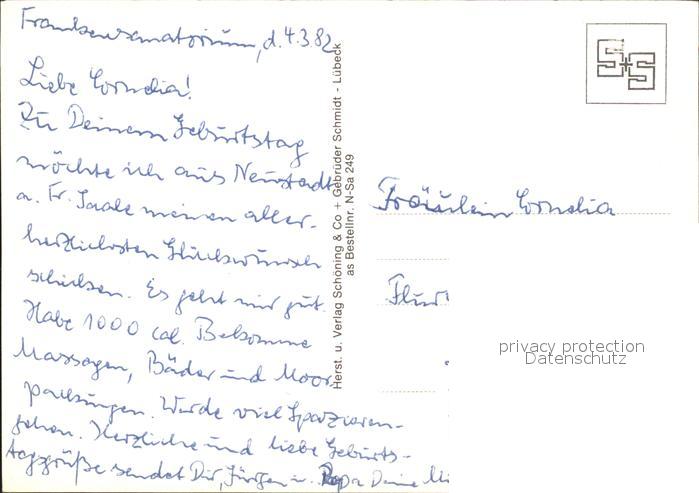 Frankensanatorium, d. 4.3.82
Liebe Cornelia!
Zu Deinem Geburtstag
möchte ich aus Neustadt
a. Fr. Saale meinen aller-
herzlichsten Glückwunsch
schicken. Es geht mir gut.
Habe 1000 cal. Bekomme
Massagen, Bäder und Moor-
packungen. Werde viel Spazieren-
gehen. Herzliche und liebe Geburts-
tagsgrüße sendet Dir, Jürgen u. Papa Deine
Herst. u. Verlag Schöning & Co + Gebrüder Schmidt - Lübeck
as Bestellnr. N-Sa 249
S+S
Fräulein Cornelia
privacy protection
Datenschutz